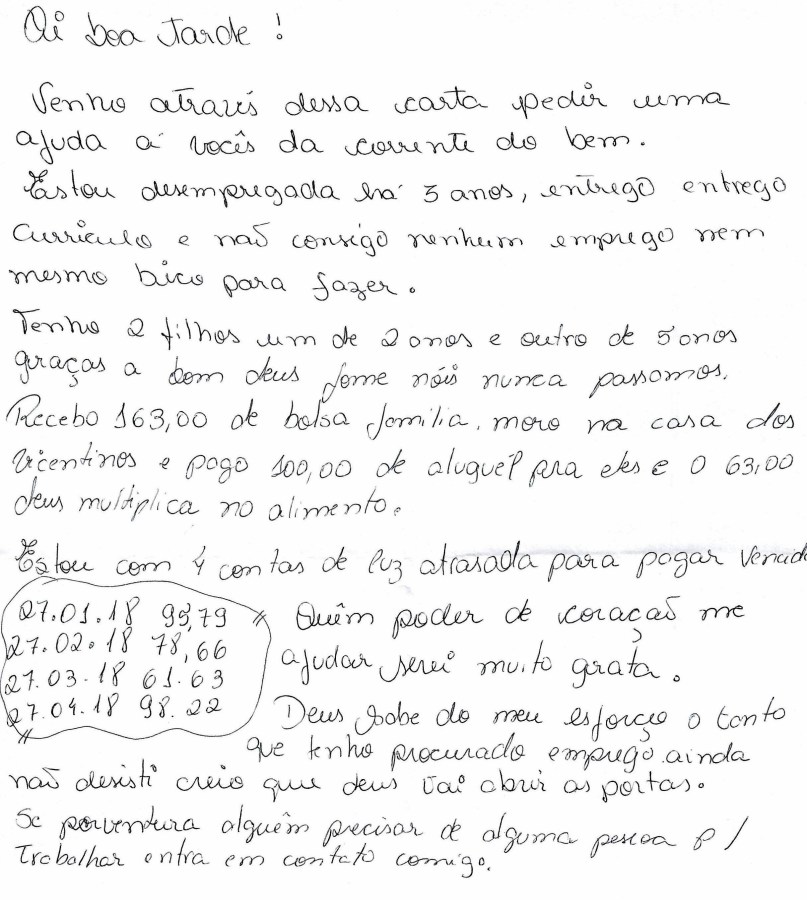 Oi boa Tarde !
Venho através dessa carta pedir uma
ajuda a vocês da corrente do bem.
Estou desempregada há 3 anos, entrego entrego
Currículo e não consigo nenhum emprego nem
mesmo bico para fazer.
Tenho 2 filhos um de 2 anos e outro de 5 anos
graças a bom deus fome nóis nunca passamos.
Recebo 163,00 de bolsa família, moro na casa dos
Vicentinos e pago 100,00 de aluguél pra eles e o 63,00
deus multiplica no alimento.
Estou com 4 contas de luz atrasada para pagar
27.01.18 95,79
27.02.18 78,66
27.03.18 61.63
27.04.18 98.22
Quêm poder de coração me
ajudar serei muito grata.
Deus sabe do meu esforço o tanto
que tenho procurado emprego ainda
não desisti creio que deus vai abrir as portas.
Se porventura alguêm precisar de alguma pessoa p/
Trabalhar entra em contato comigo.